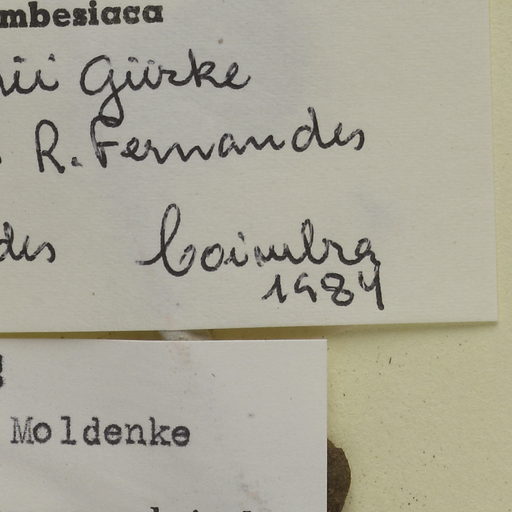 mbesiaca
nii Gürke
R. Fernandes
des Coimbra
1984
Moldenke